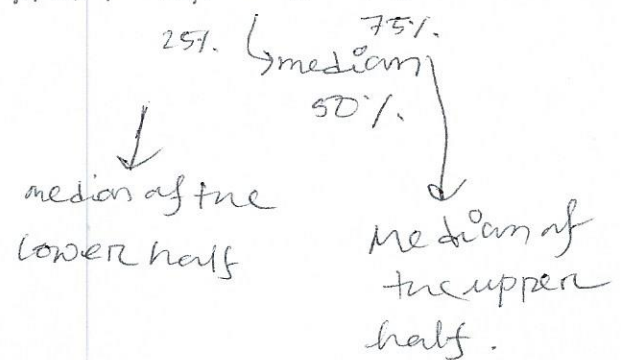 25%. 75%.
median
50%.
median of the
lower half
Median of
the upper
half.